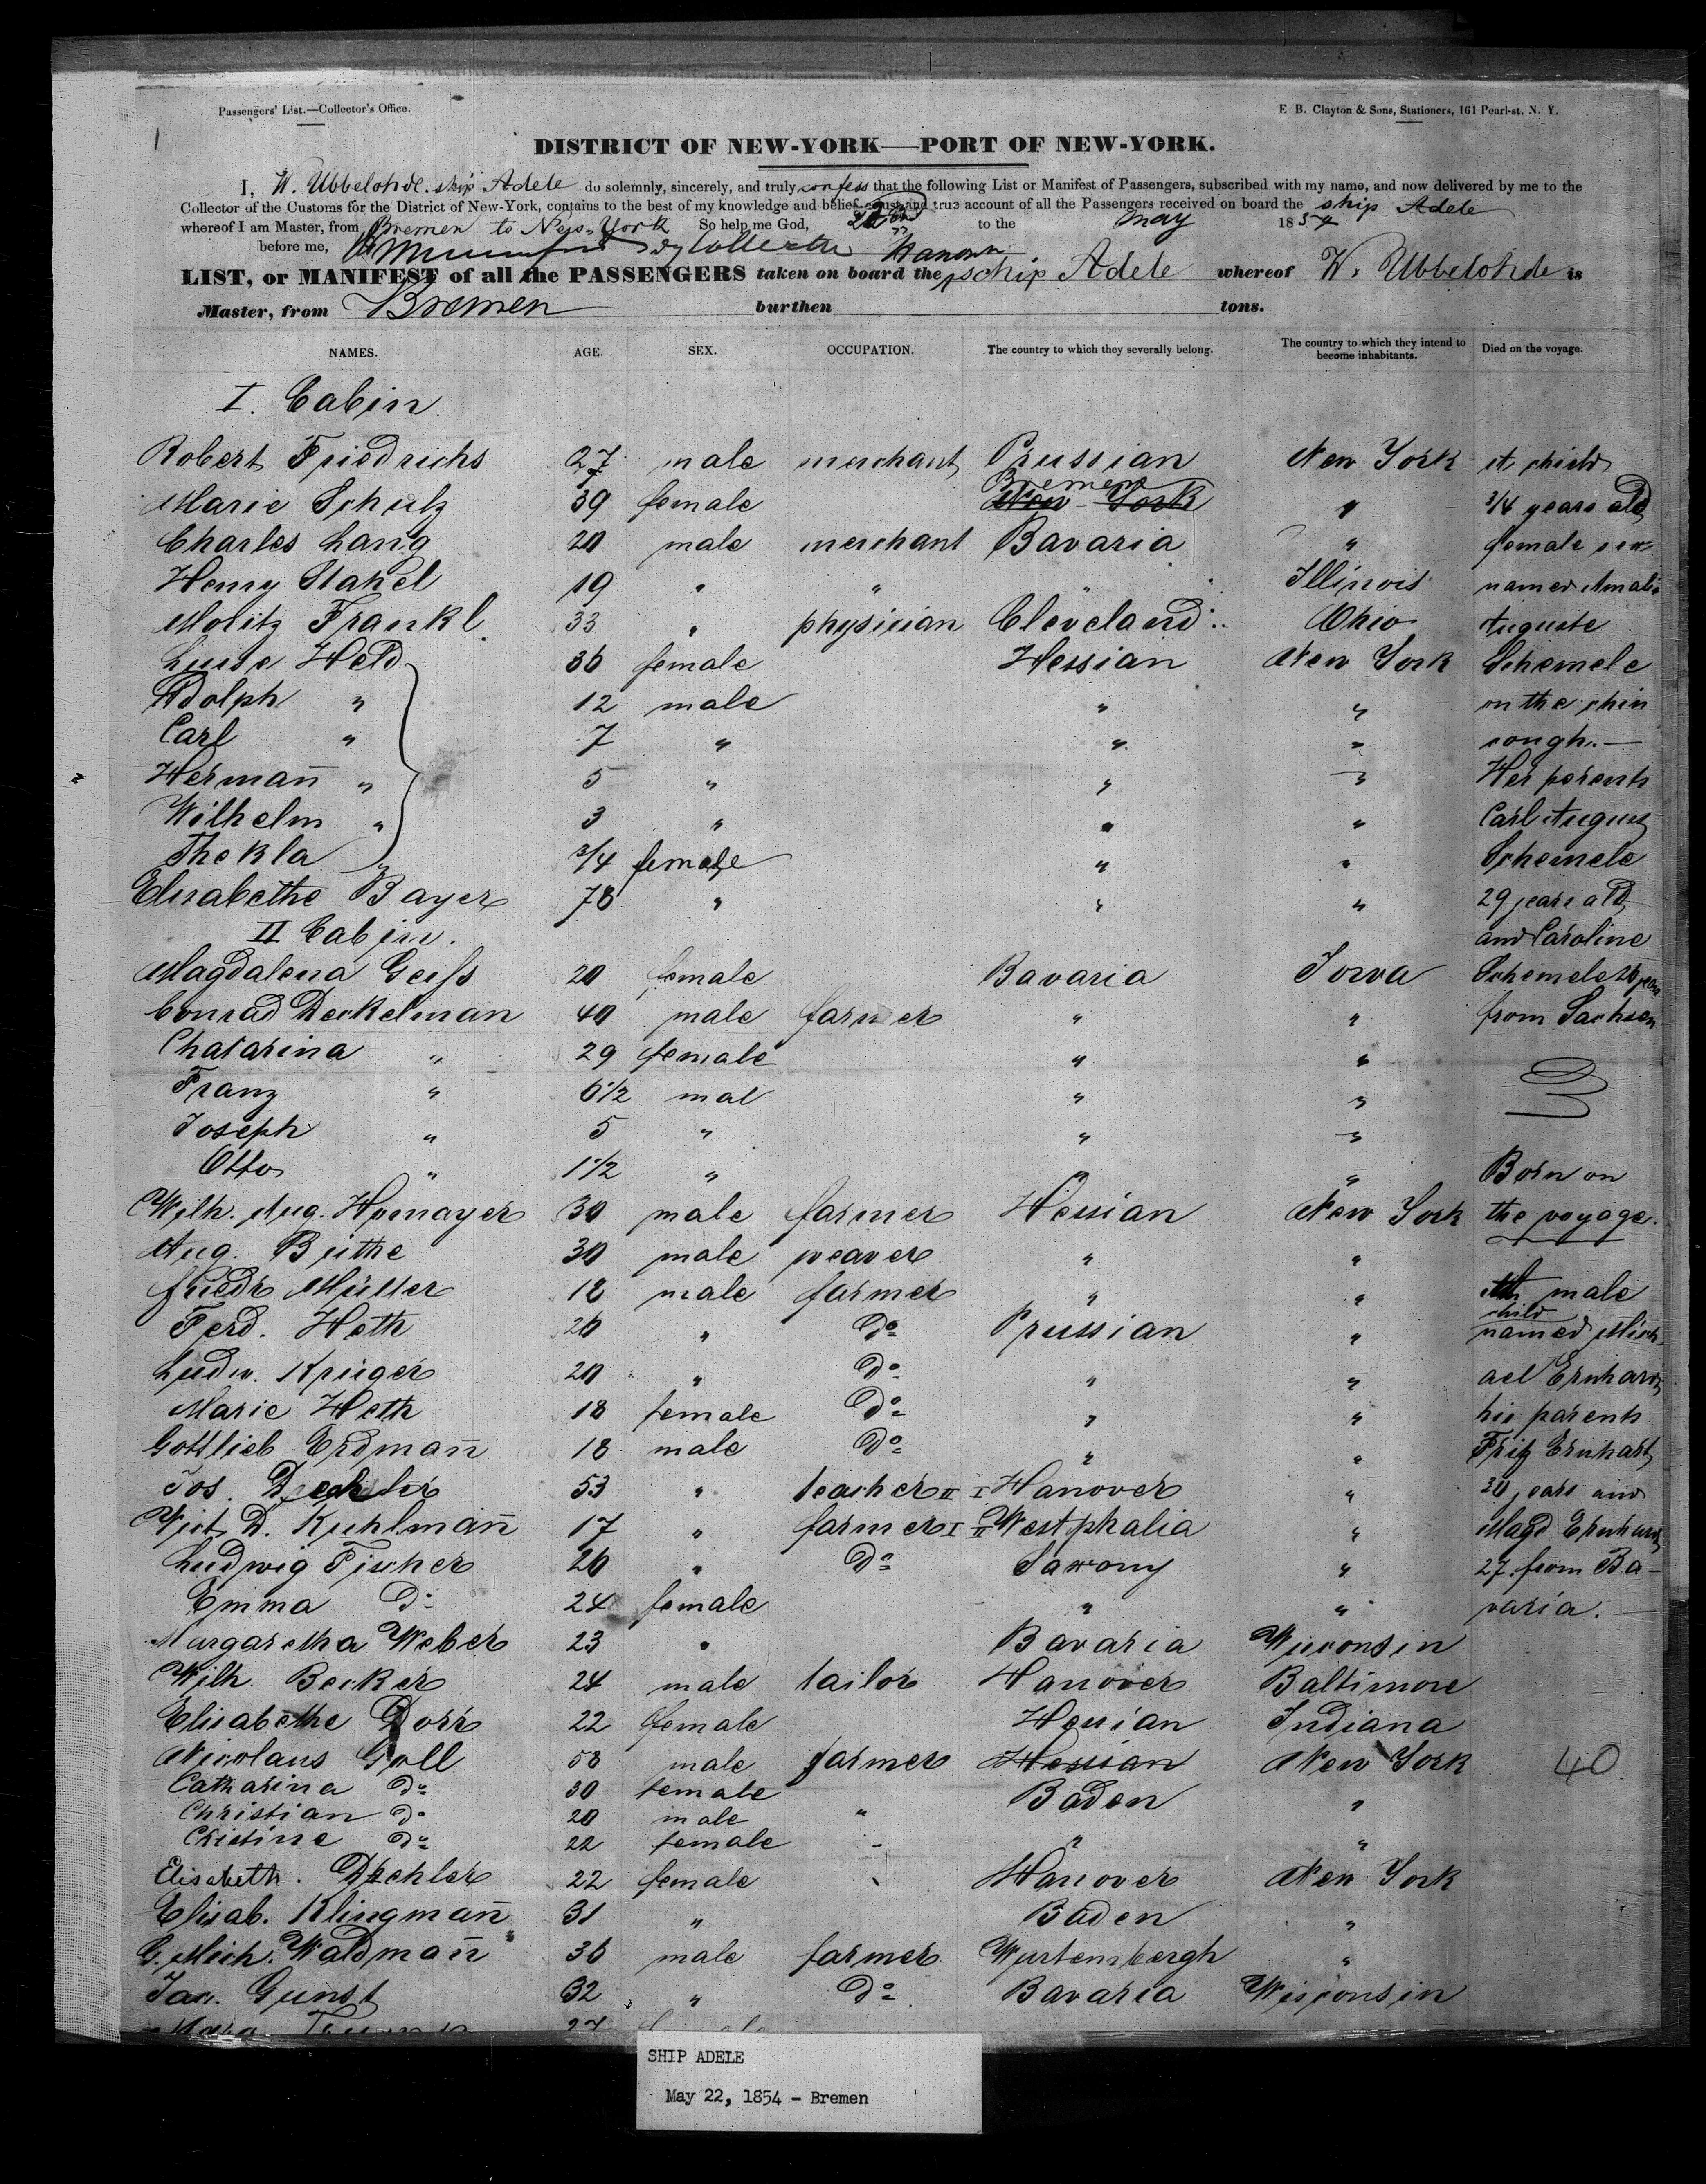 Passengers' List.—Collector's Office.
E. B. Clayton & Sons, Stationers, 161 Pearl-st. N. Y.
1
DISTRICT OF NEW-YORK—PORT OF NEW-YORK.
I, W. Ubbelohde. ship Adele do solemnly, sincerely, and truly confess that the following List or Manifest of Passengers, subscribed with my name, and now delivered by me to the
Collector of the Customs for the District of New-York, contains to the best of my knowledge and belief a just and true account of all the Passengers received on board the ship Adele
whereof I am Master, from Bremen to New-York So help me God, 22 to the May 1854
before me, Hanover
LIST, or MANIFEST of all the PASSENGERS taken on board the schip Adele whereof W. Ubbelohde is
Master, from Bremen burthen tons.
NAMES. AGE. SEX. OCCUPATION. The country to which they severally belong. The country to which they intend to become inhabitants. Died on the voyage.
I. Cabin
Robert Friedrichs 27 male merchant Prussian New York A child
Marie Schulz 39 female Bremen New York " 3/4 years old
Charles Lang 20 male merchant Bavaria " female sex
Henry Stakel 19 " " " Illinois named Amalie
Molitz Frankl. 33 " physician Cleveland Ohio Auguste
Luise Held 36 female Hessian New York Schemele
Adolph " 12 male " " on the chin
Carl " 7 " " " cough.—
Hermañ " 5 " " " Her parents
Wilhelm " 3 " " " Carl August
Thekla " 3/4 female " " Schemele
Elisabethe Bayer 78 " " " 29 years old
II Cabin. and Caroline
Magdalena Geiss 20 female Bavaria Iowa Schemele 26 years
Conrad Deckelman 40 male farmer " " from Sachsen
Chatarina " 29 female " "
Franz " 6 1/2 mal " "
Joseph " 5 " " "
Otto " 1 1/2 " " " Born on
Wilh. Aug. Homayer 30 male farmer Hessian New York the voyage.
Aug. Büthe 30 male weaver " "
Friedr Müller 18 male farmer " " A male child
Ferd. Heth 26 " Do Prussian " named Mich-
Ludw. Krüger 20 " Do " " ael Ernhard
Marie Heth 18 female Do " " his parents
Gottlieb Erdmañ 18 male Do " " Fritz Ernhart
Jos. Dechler 53 " teacher II I Hanover " 30 years and
D. Kuhlmañ 17 " farmer I II Westphalia " Magd Ernhard
Ludwig Fischer 26 " Do Saxony " 27 from Ba-
Emma Do 24 female " " varia.—
Margaretha Weber 23 " Bavaria Wisconsin
Wilh. Becker 24 male tailor Hanover Baltimore
Elisabethe Dorr 22 female Hessian Indiana
Nicolaus Goll 58 male farmer Hessian New York 40
Catharina Do 30 female Baden "
Christian Do 20 male "
Cristine Do 22 female " "
Elisabeth. Dechler 22 female Hanover New York
Elisab. Klingmañ 31 " Baden "
G. Mich. Waldmañ 36 male farmer Wurtembergh "
Jac. Gunst 32 " Do Bavaria Wisconsin
SHIP ADELE
May 22, 1854 - Bremen